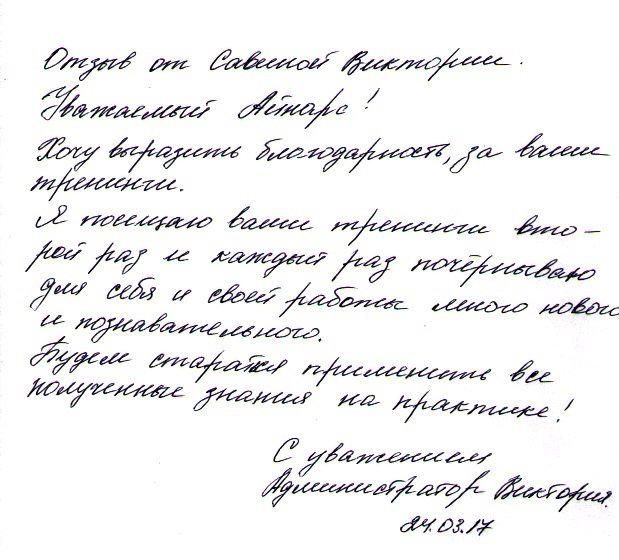 Отзыв от Савиной Виктории.
Уважаемый Айнарс!
Хочу выразить благодарность, за ваши
тренинги.
Я посещаю ваши тренинги вто-
рой раз и каждый раз почёрпываю
для себя и своей работы много нового
и познавательного.
Будем старатся применить все
полученные знания на практике!
С уважением
Администратор Виктория.
24.03.17